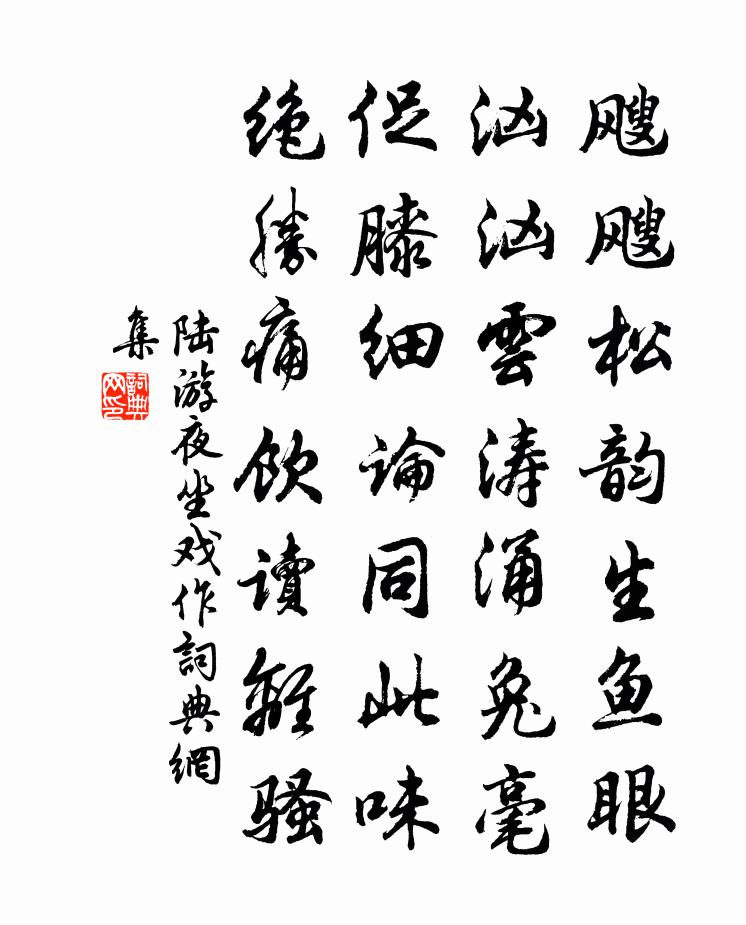 飕飕松韵生鱼眼
汹汹雲涛涌兔毫
促膝细論同此味
绝勝痛饮读離骚
陆游夜坐戏作詞典網
集
詞典
网印